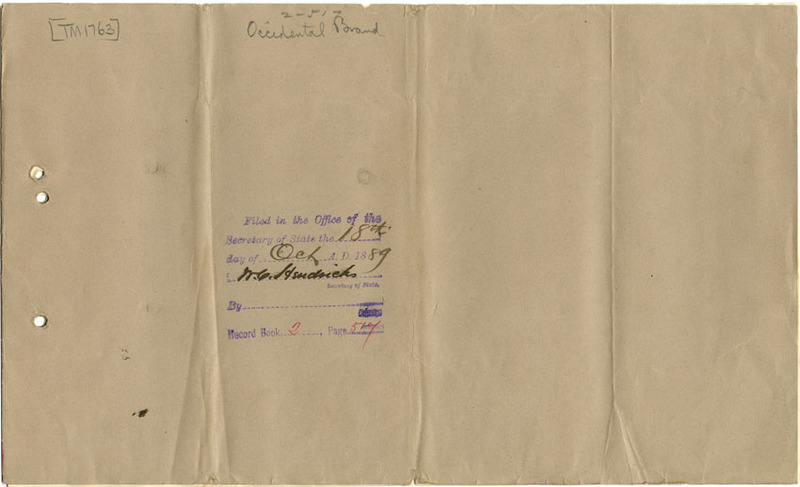 [TM1763]
2-517
Occidental Brand
Filed in the Office of the
Secretary of State the 18th
day of Oct A.D. 1889
W.C. Hendricks
Secretary of State.
By
Record Book 2, Page 517